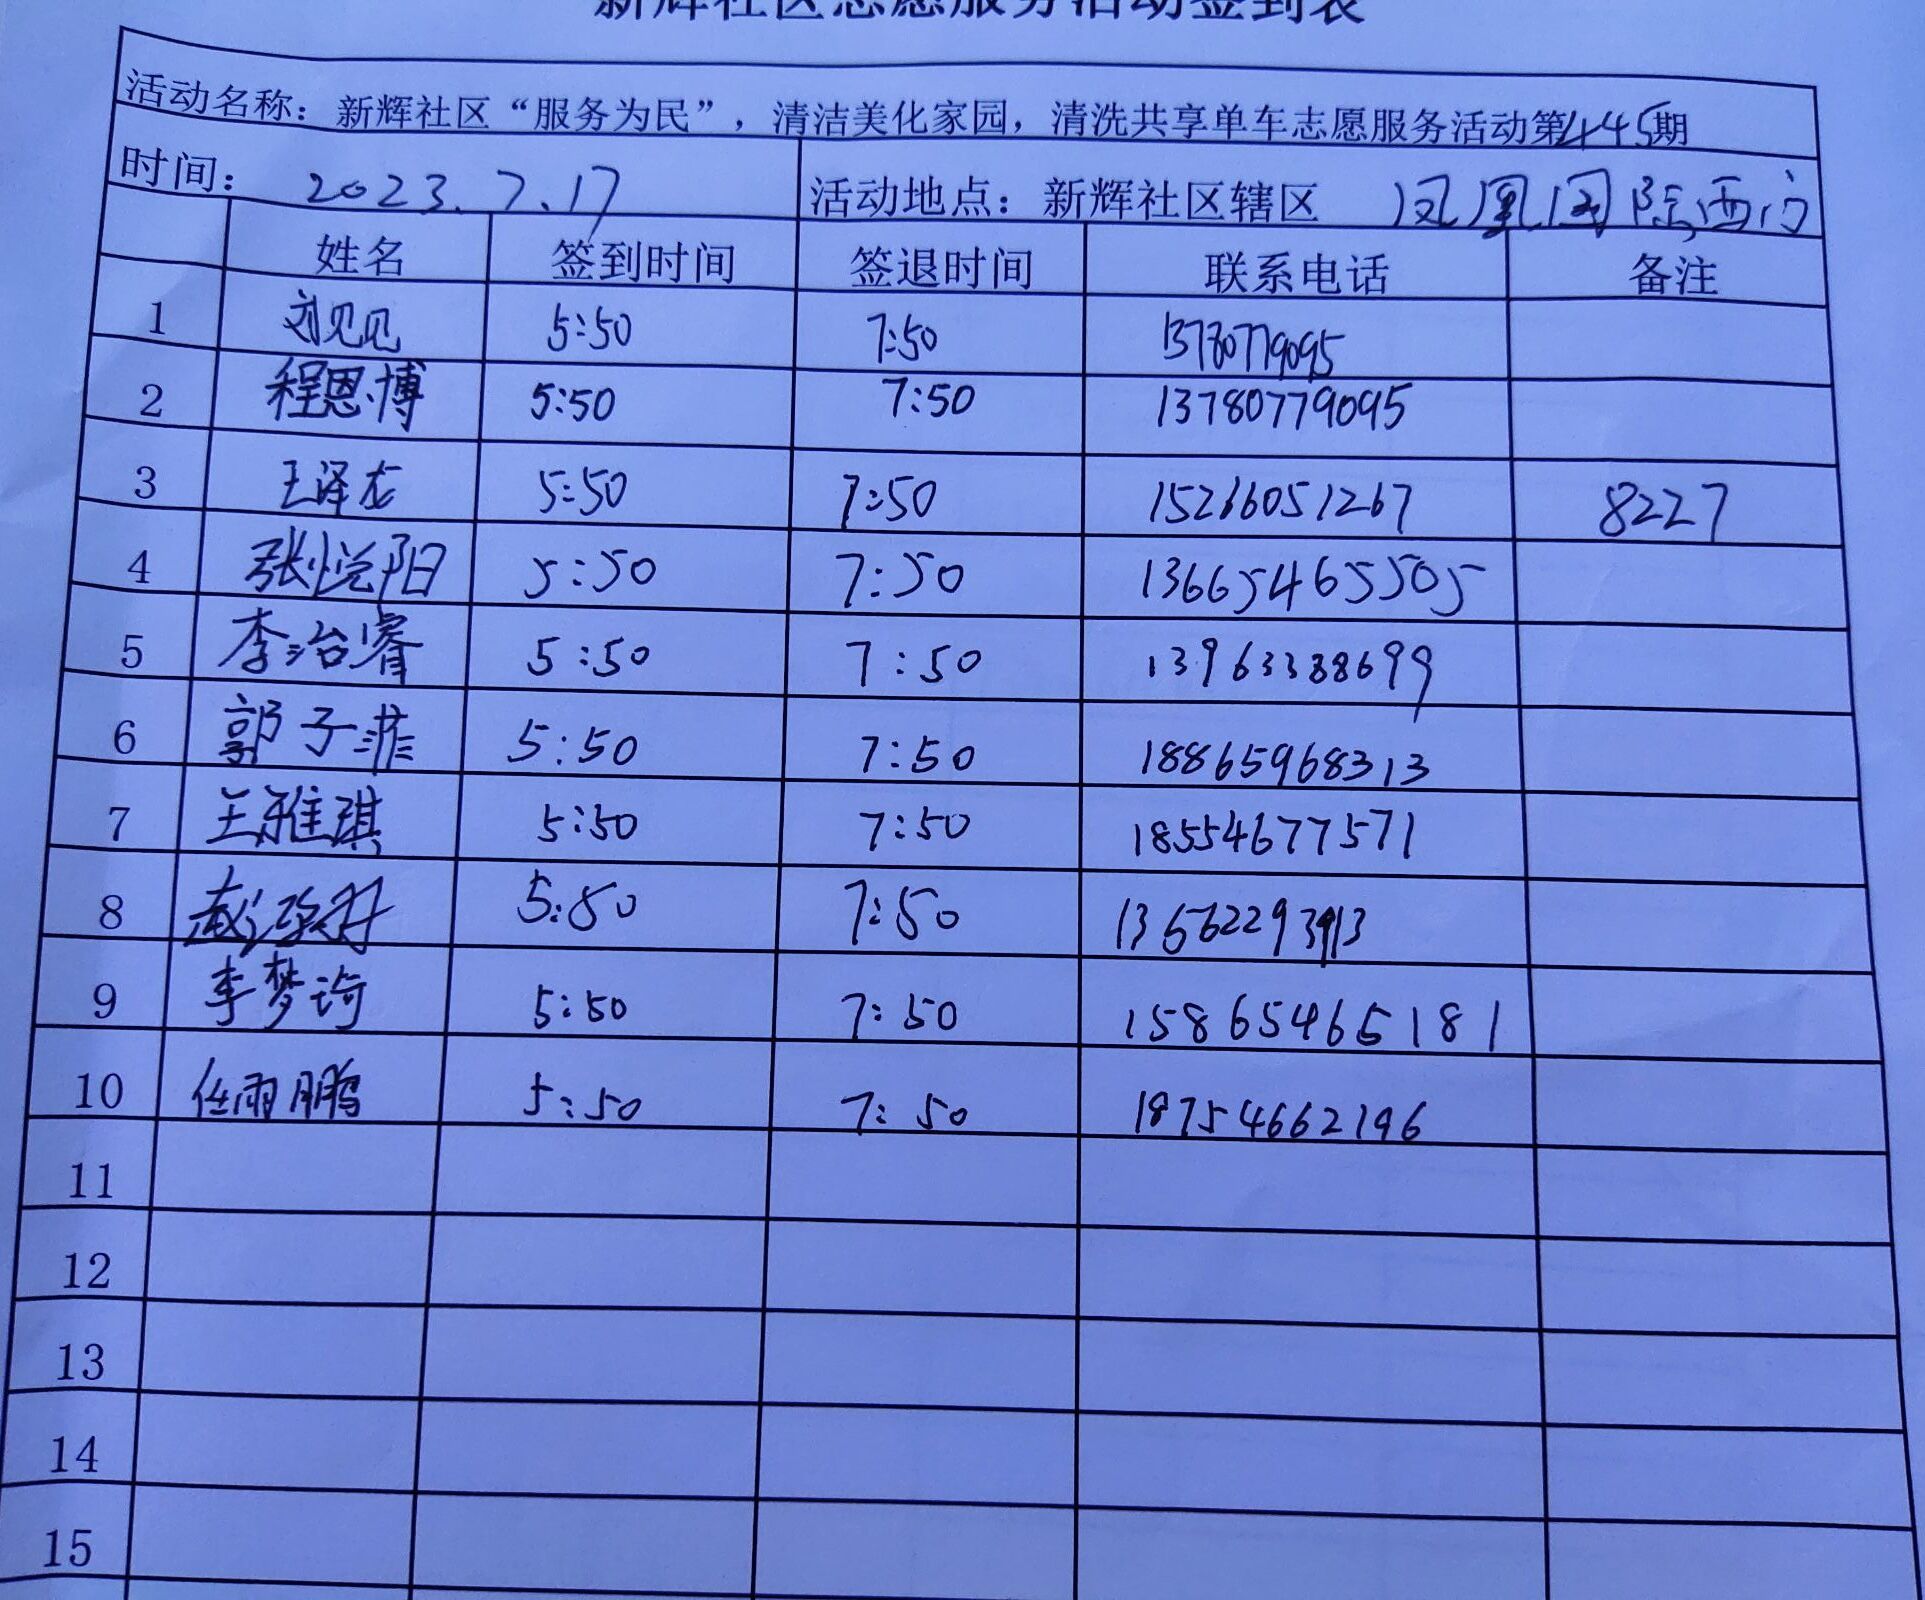 新辉社区志愿服务活动签到表
活动名称：新辉社区“服务为民”，清洁美化家园，清洗共享单车志愿服务活动第445期
时间： 2023.7.17 活动地点：新辉社区辖区 凤凰国际西门
姓名 签到时间 签退时间 联系电话 备注
1 刘见见 5:50 7:50 13780779095
2 程恩博 5:50 7:50 13780779095
3 王泽龙 5:50 7:50 15266051267 8227
4 张悦阳 5:50 7:50 13665465505
5 李治睿 5:50 7:50 13963388699
6 郭子菲 5:50 7:50 18865968313
7 王雅琪 5:50 7:50 18554677571
8 5:50 7:50
9 李梦琦 5:50 7:50 15865465181
10 任雨鹏 5:50 7:50 18754662196
11
12
13
14
15